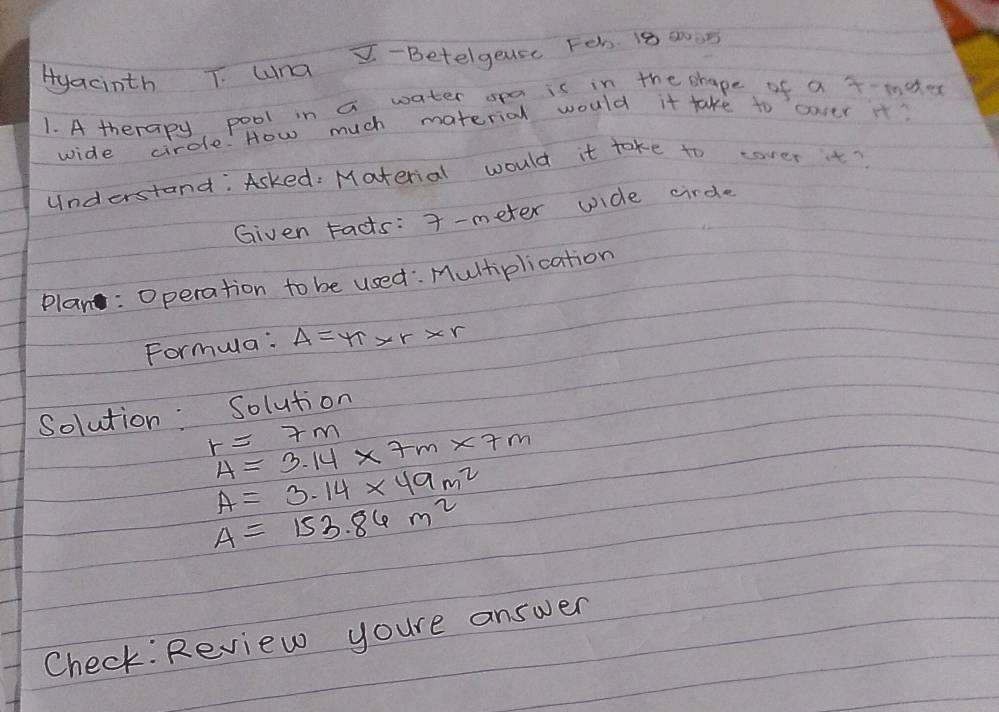 Hyacinth T. Luna V -Betelgeuse Feb. 18 2025
1. A therapy pool in a water spa is in the shape of a 7-meter
wide circle. How much material would it take to cover it?
Understand: Asked: Material would it take to cover it?
Given Facts: 7-meter wide circle
Plan: Operation to be used: Multiplication
Formula: A=π×r×r
Solution: Solution
r= 7m
A= 3.14 × 7m × 7m
A= 3.14 × 49m²
A= 153.86 m²
Check: Review youre answer